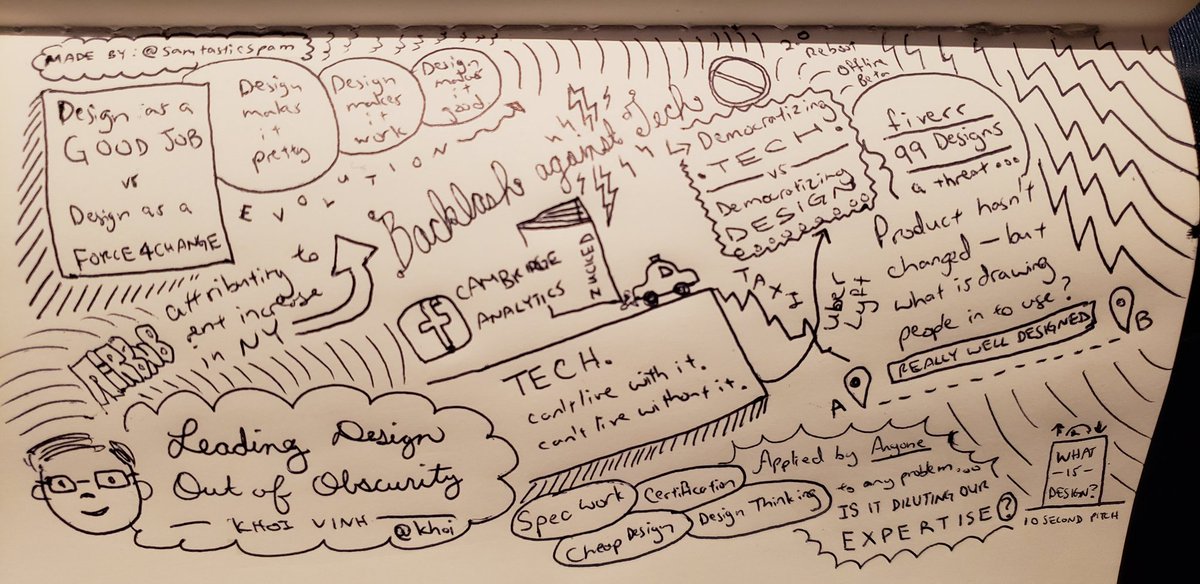 MADE BY: @samtasticspam
Design as a
GOOD JOB
vs
Design as a
FORCE4CHANGE
Design
makes
it
pretty
Design
makes
it
work
Design
makes
it
good
EVOLUTION
Backlash against Tech
2.0
Reboot
Offline
Beta
Democratizing
TECH.
vs
Democratizing
DESIGN
fiverr
99 Designs
a threat...
Product hasn't
changed - but
what is drawing
people in to use?
REALLY WELL DESIGNED
A
B
AIRBNB
attributing to
rent increase
in NY
f
CAMBRIDGE
ANALYTICS
ZUCKED
D
TAXI
Uber
Lyft
TECH.
can't live with it.
can't live without it.
Leading Design
Out of Obscurity
— KHOI VINH —
@khoi
Spec work
Certification
Cheap Design
Design Thinking
Applied by Anyone
to any problem...
IS IT DILUTING OUR
EXPERTISE?
WHAT
- IS -
DESIGN?
10 SECOND PITCH